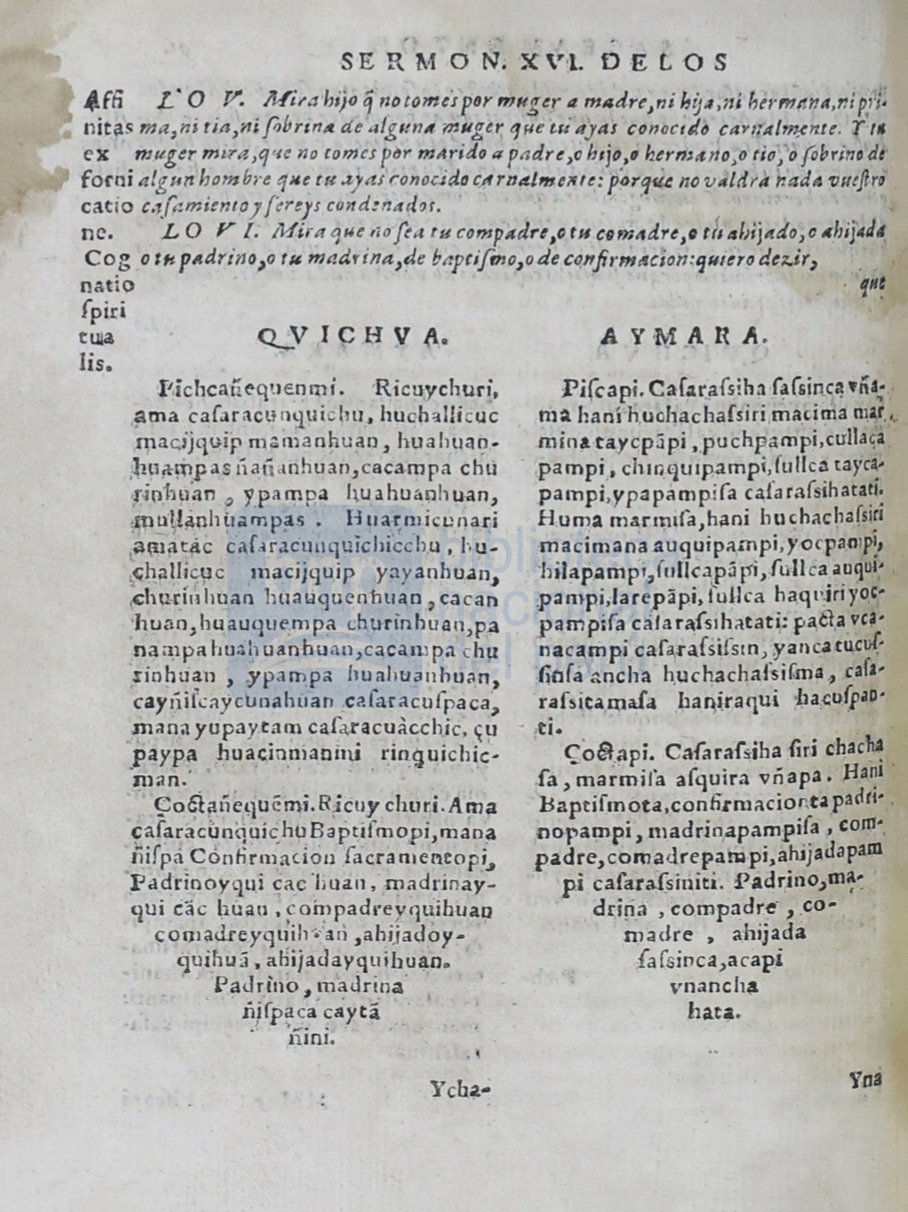 SERMON. XVI. DELOS
Affi LO V. Mira hijo q̃ no tomes por muger a madre, ni hija, ni hermana, ni pri
nitas ma, ni tia, ni ſobrina de alguna muger que tu ayas conocido carnalmente. Y tu
ex muger mira, que no tomes por marido a padre, o hijo, o hermano, o tio, o ſobrino de
forni algun hombre que tu ayas conocido carnalmente: porque no valdra nada vueſtro
catio caſamiento y ſereys condenados.
ne. LO VI. Mira que no ſea tu compadre, o tu comadre, o tu ahijado, o ahijada
Cog o tu padrino, o tu madrina, de baptiſmo, o de confirmacion: quiero dezir,
natio que
ſpiri
tua
lis.
QVICHVA.
Pichcañequenmi. Ricuychuri,
ama caſaracunquichu, huchallicuc
macijquip mamanhuan, huahuan-
huampas ñañanhuan, cacampa chu
rinhuan, ypampa huahuanhuan,
mullanhuampas. Huarmicunari
amatac caſaracunquichicchu, hu-
challicuc macijquip yayanhuan,
churinhuan huauquenhuan, cacan
huan, huauquempa churinhuan, pa
nampa huahuanhuan, cacampa chu
rinhuan, ypampa huahuanhuan,
cayñiſcaycunahuan caſaracuſpaca,
mana yupaytam caſaracuàcchic, çu
paypa huacinmanmi rinquichic-
man.
Çoctañequẽmi. Ricuy churi. Ama
caſaracunquichu Baptiſmopi, mana
ñiſpa Confirmacion ſacramentopi,
Padrinoyqui cac huan, madrinay-
qui cac huan, compadreyquihuan
comadreyquihuan, ahijadoy-
quihuã, ahijadayquihuan.
Padrino, madrina
ñiſpaca caytã
ñini.
Ycha-
AYMARA.
Piſcapi. Caſaraſsiha ſaſsinca vña-
ma hani huchachaſsiri macima mar
mina taycpãpi, puchpampi, cullaca
pampi, chinquipampi, ſullca tayca-
pampi, ypapampiſa caſaraſsihatati.
Huma marmiſa, hani huchachaſsiri
macimana auquipampi, yocpampi,
hilapampi, ſullcapãpi, ſullca auqui-
pampi, larepãpi, ſullca haquiri yoc-
pampiſa caſaraſsihatati: pacta vca-
nacampi caſaraſsiſsin, yanca tucuſ-
ſinſa ancha huchachaſsiſma, caſa-
raſsitamaſa haniraqui hacuſpan-
ti.
Çoctapi. Caſaraſsiha ſiri chacha
ſa, marmiſa aſquira vñapa. Hani
Baptiſmota, confirmacionta padri-
nopampi, madrinapampiſa, com-
padre, comadrepampi, ahijadapam
pi caſaraſsiniti. Padrino, ma-
drina, compadre, co-
madre, ahijada
ſaſsinca, acapi
vnancha
hata.
Yna